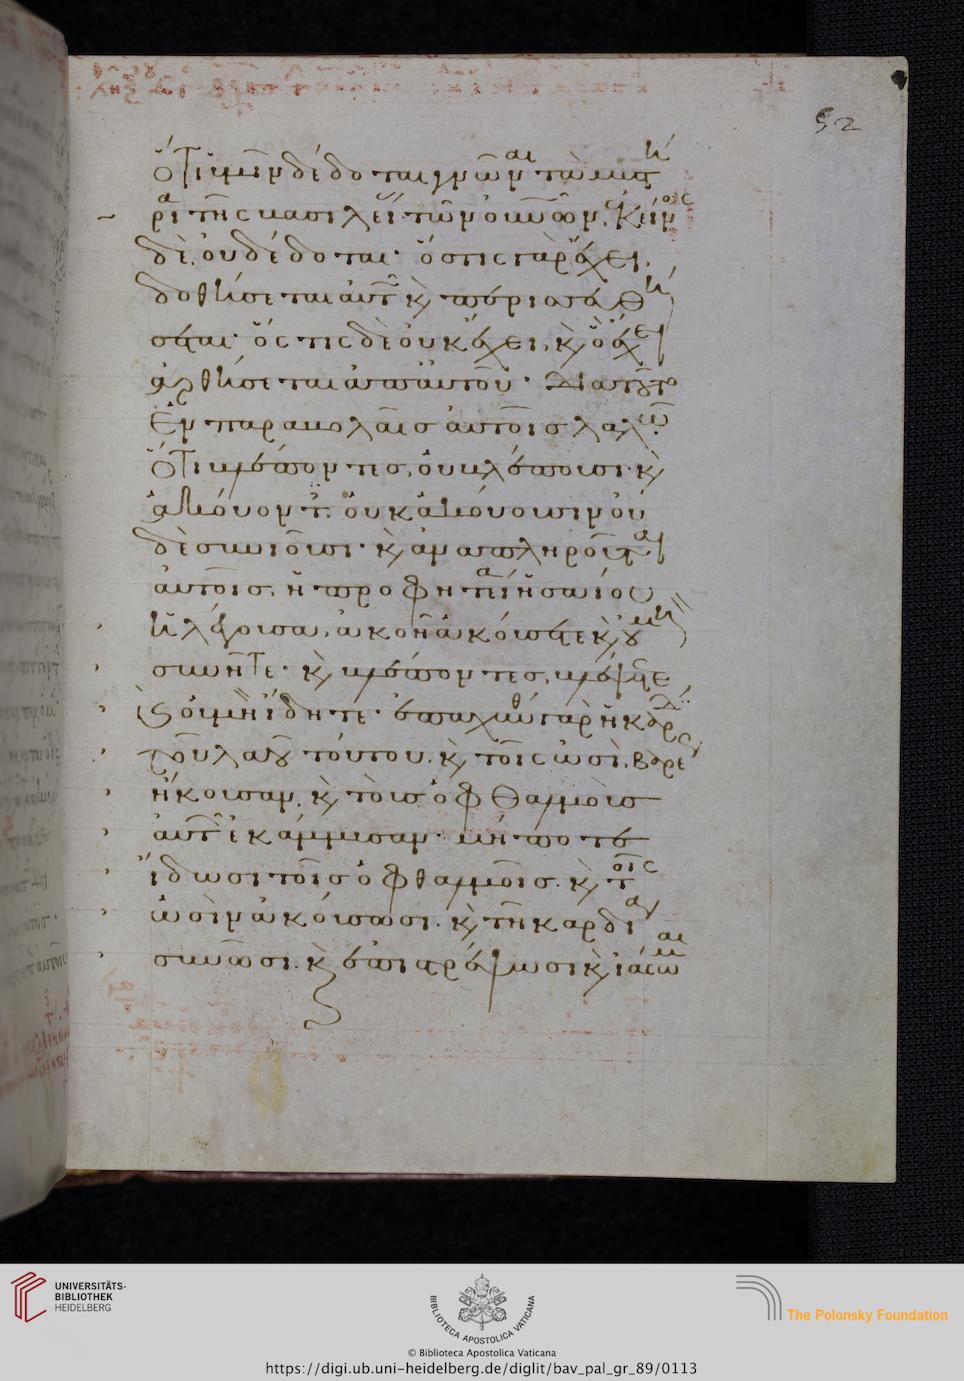 52
ὅτι ὑμῖν δέδοται γνῶναι τὰ μυστή
ρια τῆς βασιλείας τῶν οὐρανῶν. ἐκείνοις
δὲ, οὐ δέδοται· ὅστις γὰρ ἔχει,
δοθήσεται αὐτῷ κὶ περισσευθή
σεται· ὅς τις δὲ οὐκ ἔχει, κὶ ὃ ἔχει
ἀρθήσεται ἀπ' αὐτοῦ· Διατοῦτο
ἐν παραβολαῖς αὐτοῖς λαλῶ.
ὅτι βλέποντες, οὐ βλέπουσι· κὶ
ἀκούοντες οὐκ ἀκούουσιν οὐ
δὲ συνιοῦσι· κὶ ἀναπληροῦται
αὐτοῖς, ἡ προφητεία ἡσαίου
ἡ λέγουσα, ἀκοῇ ἀκούσετε κὶ οὐ μὴ
συνῆτε· κὶ βλέποντες, βλέψετε
κὶ οὐ μὴ ἴδητε· ἐπαχύνθη γὰρ ἡ καρδία
τοῦ λαοῦ τούτου. κὶ τοῖς ὠσὶ, βαρέως
ἤκουσαν. κὶ τοὺς ὀφθαλμοὺς
αὐτῶν ἐκάμμυσαν· μή ποτε
ἴδωσι τοῖς ὀφθαλμοῖς. κὶ τοῖς
ὠσὶν ἀκούσωσι. κὶ τῇ καρδίᾳ
συνῶσι. κὶ ἐπιστρέψωσι κὶ ἰάσωμαι
UNIVERSITÄTS-
BIBLIOTHEK
HEIDELBERG
BIBLIOTECA APOSTOLICA VATICANA
The Polonsky Foundation
© Biblioteca Apostolica Vaticana
https://digi.ub.uni-heidelberg.de/diglit/bav_pal_gr_89/0113